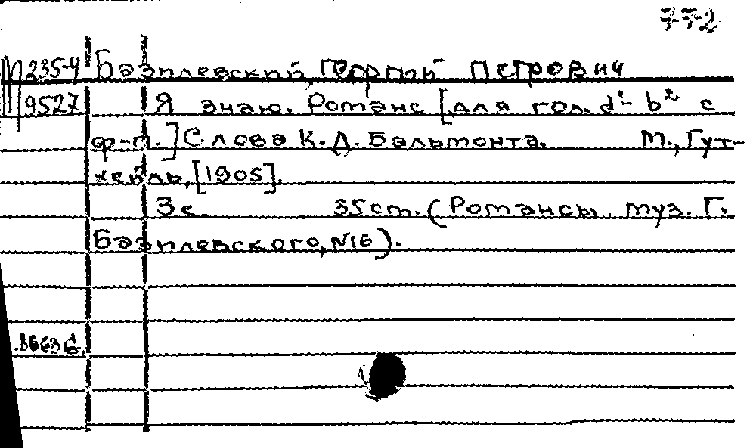 772
М235-4 Базилевский, Георгий Петрович
9527 Я знаю. Романс [для гол. d¹- b² с
ф-п.] Слова К. Д. Бальмонта. М., Гут-
хейль, [1905].
3 с. 35 cm. (Романсы муз. Г.
Базилевского, №16).